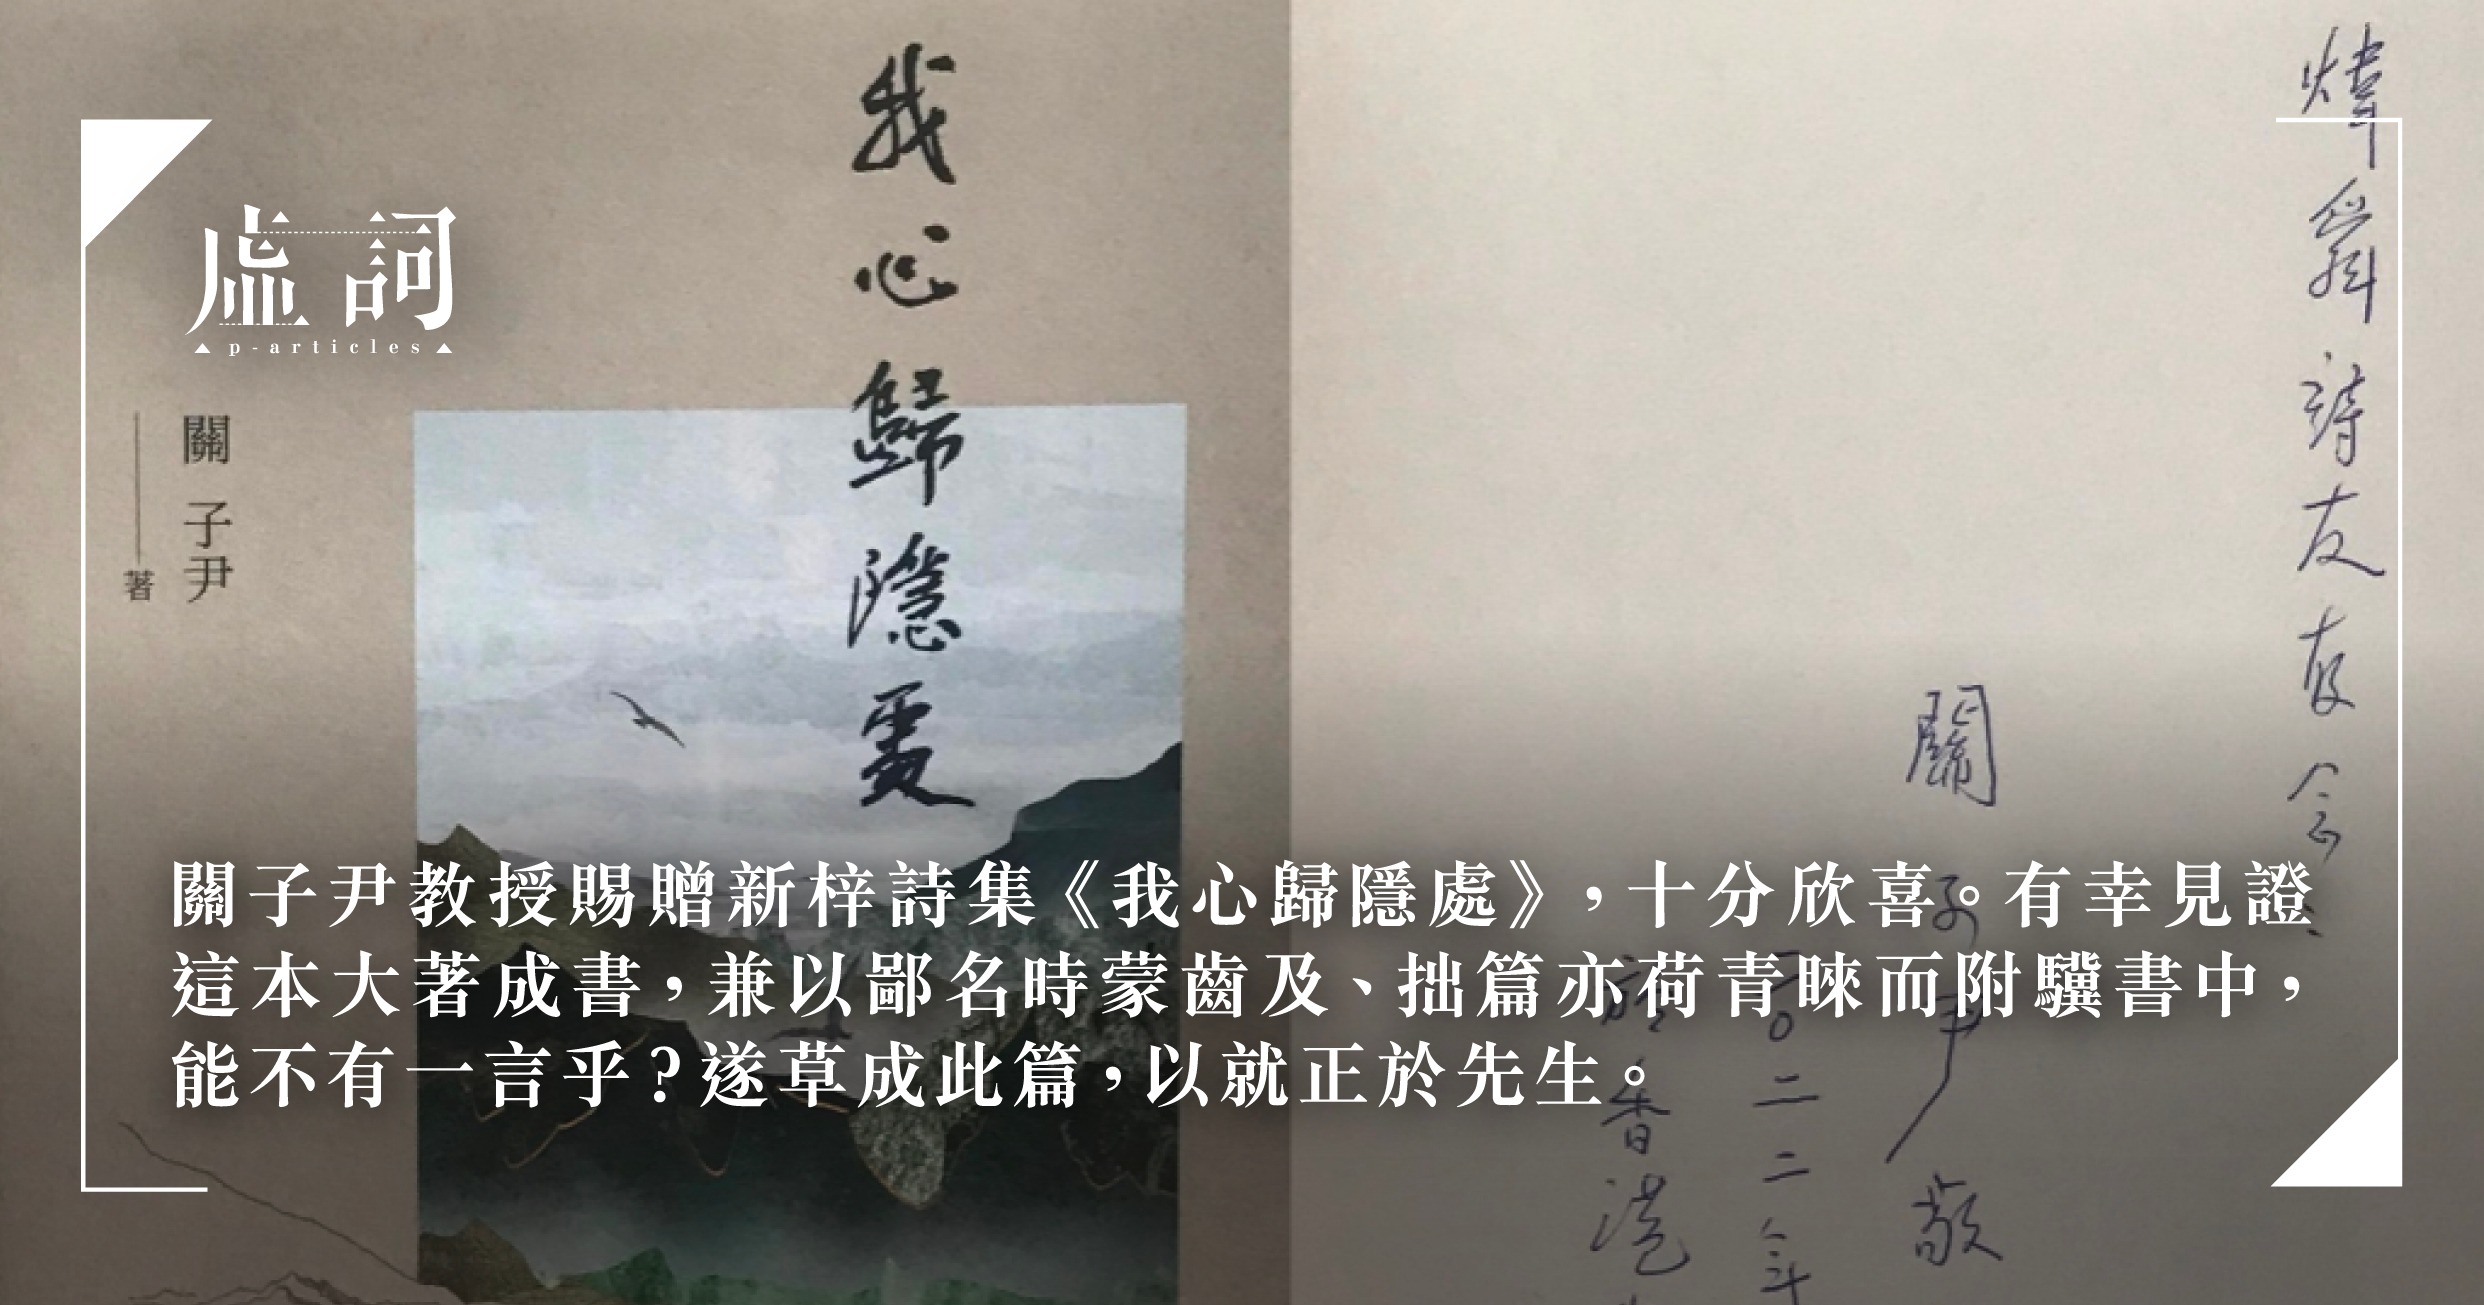 我心歸隱處
虛詞
p-articles
關子尹
著
關子尹教授賜贈新梓詩集《我心歸隱處》，十分欣喜。有幸見證
這本大著成書，兼以鄙名時蒙齒及、拙篇亦荷青睞而附驥書中，
能不有一言乎？遂草成此篇，以就正於先生。
煒舜詩友存念
關子尹敬
二〇二二年
於香港